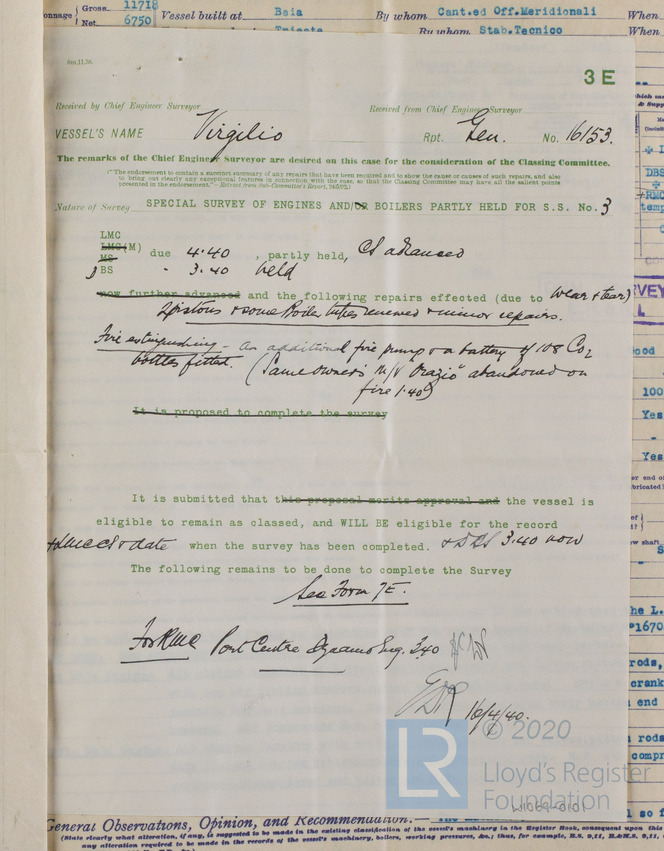 onnage Gross 11718 Vessel built at Baia By whom Cant.ed Off.Meridionali When
Net 6750 Trieste By whom Stab.Tecnico When
3E
Received by Chief Engineer Surveyor Received from Chief Engineer Surveyor
VESSEL'S NAME Virgilio Rpt. Gen. No. 16153.
The remarks of the Chief Engineer Surveyor are desired on this case for the consideration of the Classing Committee.
("The endorsement to contain a succinct summary of any repairs that have been required and to show the cause or causes of such repairs, and also
to bring out clearly any exceptional features in connection with the case, so that the Classing Committee may have all the salient points
presented in the endorsement."—
Nature of Survey SPECIAL SURVEY OF ENGINES AND/OR BOILERS PARTLY HELD FOR S.S. No. 3
LMC
LMC(M) due 4.40 , partly held, CS advanced
MS
DBS " 3.40 held
now further advanced and the following repairs effected (due to wear & tear)
2 pistons & some Boiler tubes renewed & minor repairs.
Fire extinguishing - An additional fire pump & a battery of 108 Co2
bottles fitted. (Same owner's M/V "Orazio" abandoned on
fire 1.40)
It is proposed to complete the survey
It is submitted that this proposal merits approval and the vessel is
eligible to remain as classed, and WILL BE eligible for the record
+LMCCS & date when the survey has been completed. & DBS 3.40 now
The following remains to be done to complete the Survey
See Form 7E.
For RMC Port Centre Dynamo Eng. 3.40
16/4/40.
© 2020
LR Lloyd's Register
Foundation
W1069-0101
General Observations, Opinion, and Recommendation:—
(State clearly what alteration, if any, is suggested to be made in the existing classification of the vessel's machinery in the Register Book, consequent upon this
any alteration required to be made in the records of the vessel's machinery, boilers, working pressures, &c.; thus, for example, B.S. 9,11, B.&M.S. 9,11,